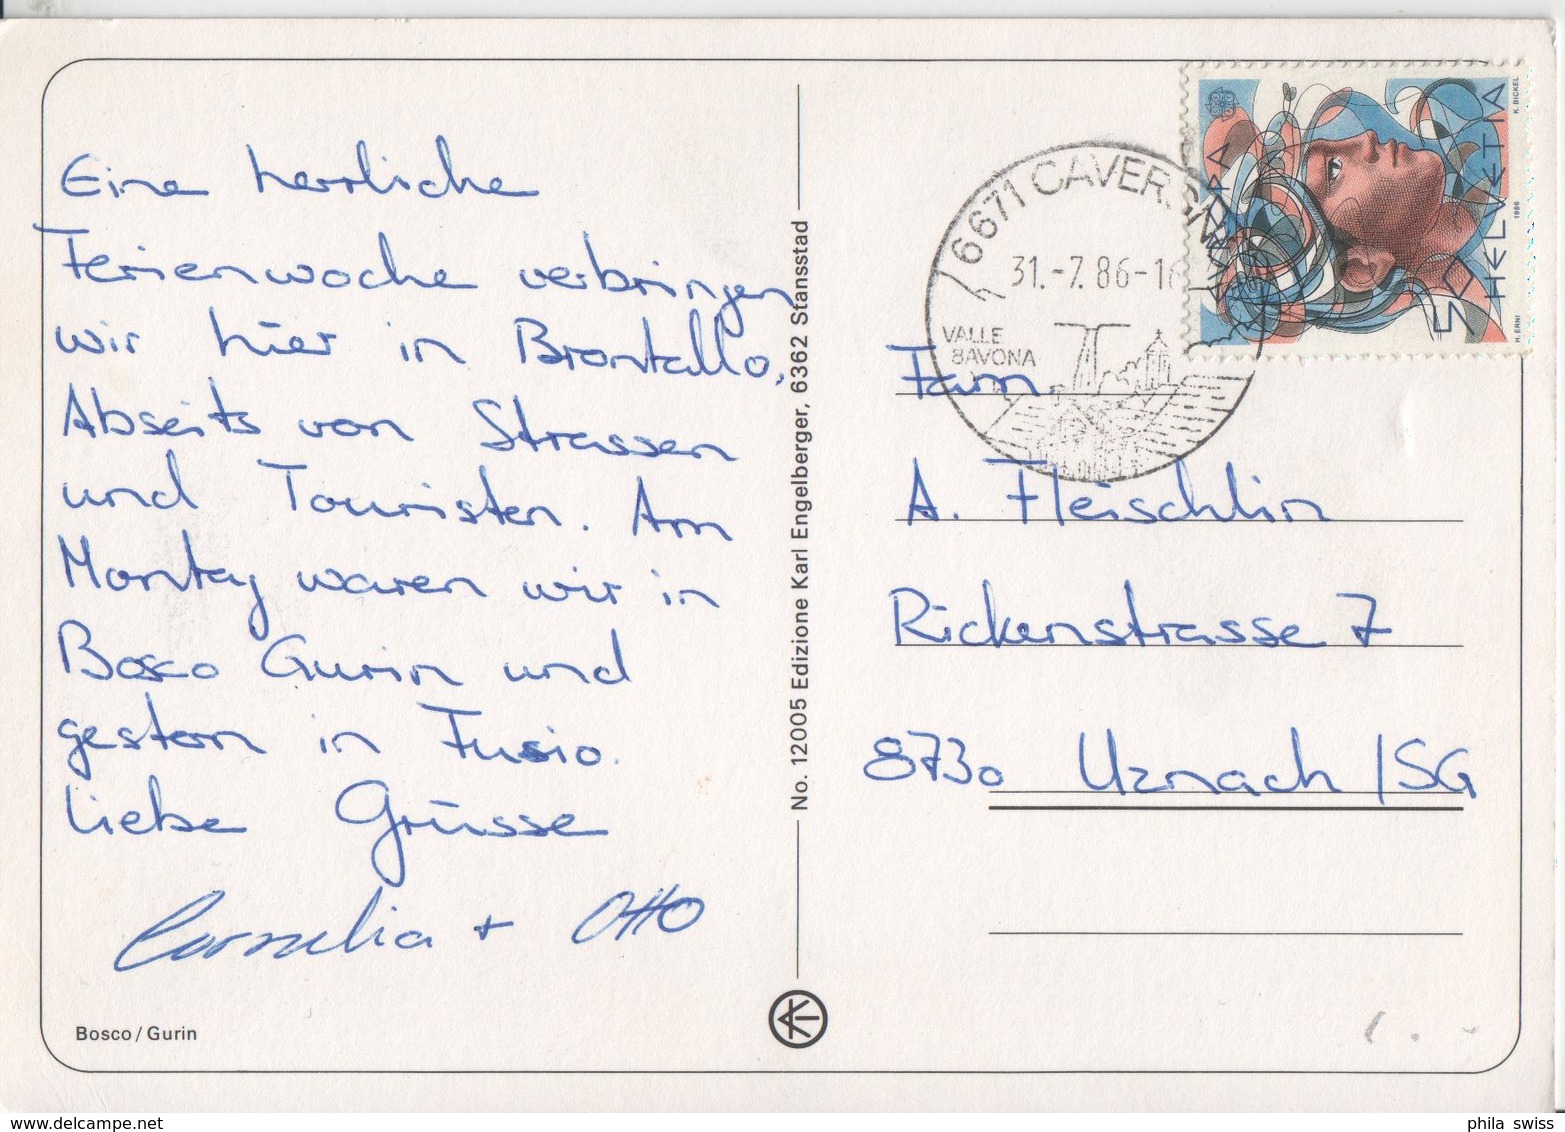 Eine herrliche
Ferienwoche verbringen
wir hier in Brontallo,
Abseits von Strassen
und Touristen. Am
Montag waren wir in
Bosco Gurin und
gestern in Fusio.
Liebe Grüsse
Cornelia + Otto
Bosco / Gurin
No. 12005 Edizione Karl Engelberger, 6362 Stansstad
6671 CAVERGNO
31.-7.86-16
VALLE
BAVONA
EUROPA
HELVETIA
50
H. ERNI
1986
K. BICKEL
Fam.
A. Fleischlin
Rickenstrasse 7
8730 Uznach / SG
www.delcampe.net
phila swiss